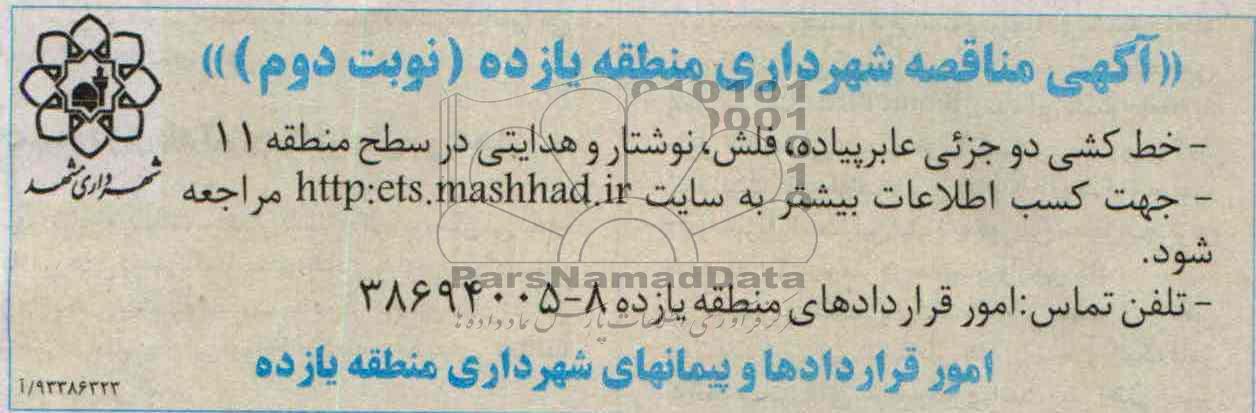 «آگهی مناقصه شهرداری منطقه یازده (نوبت دوم)»
- خط کشی دو جزئی عابرپیاده، فلش، نوشتار و هدایتی در سطح منطقه ۱۱
- جهت کسب اطلاعات بیشتر به سایت http:ets.mashhad.ir مراجعه
شود.
- تلفن تماس: امور قراردادهای منطقه یازده ۸-۳۸۶۹۴۰۰۵
امور قراردادها و پیمانهای شهرداری منطقه یازده
شهرداری مشهد
۹۳۳۸۶۳۲۳/آ
ParsNamadData